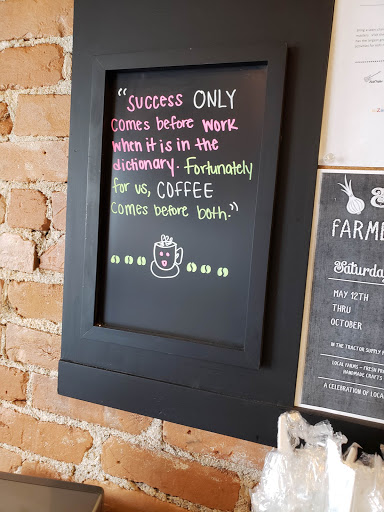 "SUCCESS ONLY
COMES before WORK
when it is in the
dictionary. Fortunately
for us, COFFEE
comes before both."
&
FARME
Saturda
MAY 12TH
THRU
OCTOBER
IN THE TRACTOR SUPPLY
LOCAL FARMS - FRESH PR
HANDMADE CRAFTS
A CELEBRATION OF LOCA